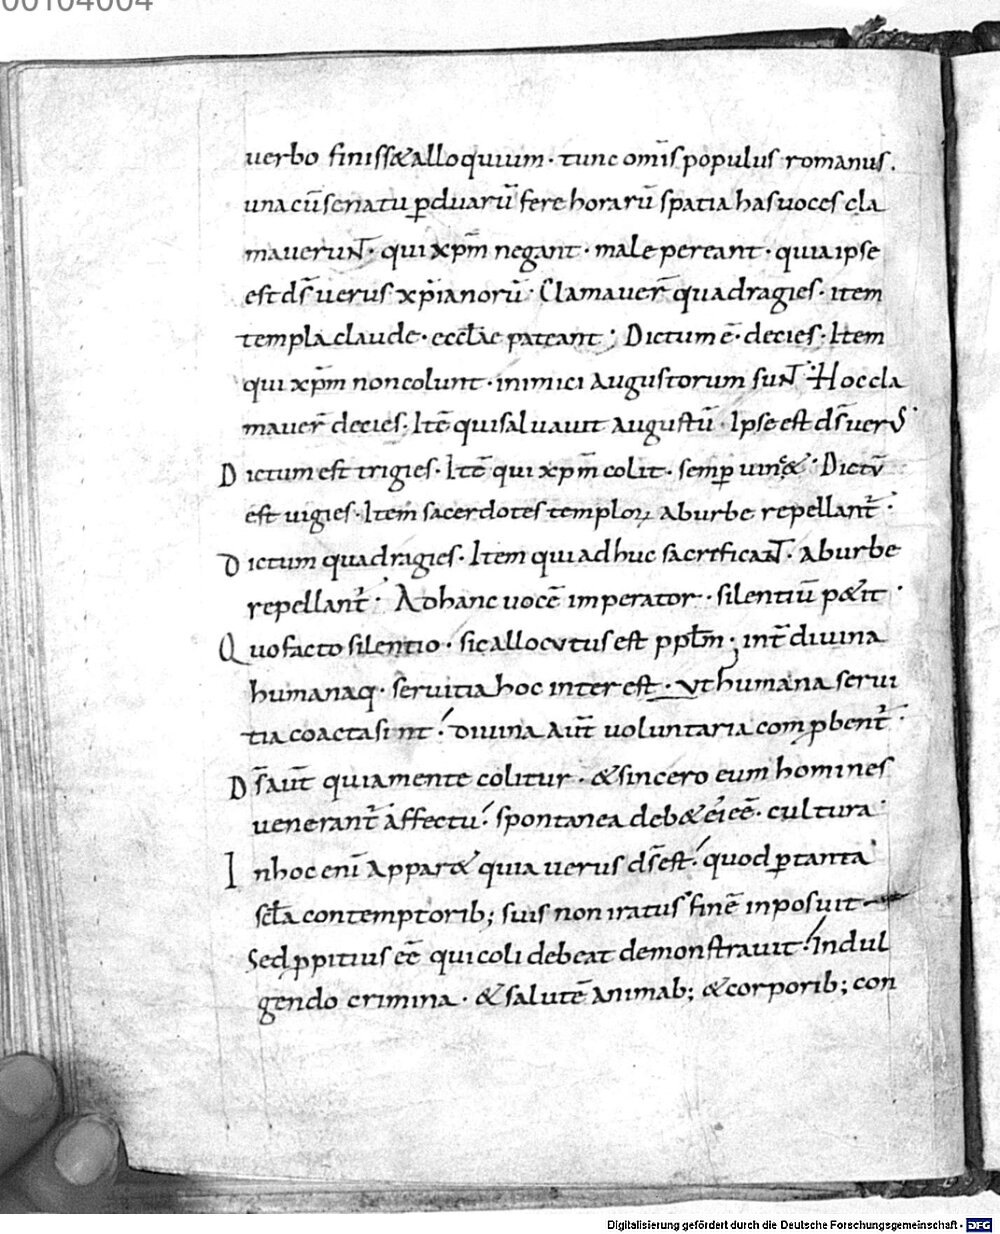 00104004
uerbo finiss&alloquium· tunc om̅is populus romanus.
una cū senatu ꝑduarū fere horarū spatia has uoces cla
mauerunt· qui xp̅m negant· male pereant· quia ipse
est d̅s uerus xp̅ianorū· Clamauer̅ quadragies· item
templa claude· eccl̅ae pateant; Dictum ē· decies· Item
qui xp̅m non colunt· inimici augustorum sunt· Hoc cla
mauer̅ decies· Itē qui saluauit augustū· Ipse est d̅s uerus·
Dictum est trigies· Itē qui xp̅m colit· semꝑ uinc&· Dictū
est uigies· Item sacerdotes temploꝝ ab urbe repellant̅·
Dictum quadragies· Item qui adhuc sacrificant· ab urbe
repellant̅· Ad hanc uocē imperator· silentiū p&iit·
Quo facto silentio· sic allocutus est ppl̅m; int̅ divina
humanaq· seruitia hoc inter est· ut humana serui
tia coacta sint· diuina aut̅ uoluntaria comꝓbent̅·
D̅s aut̅ quia mente colitur· & sincero eum homines
uenerant̅ affectu· spontanea deb& ei eē· cultura·
In hoc eni̅ appar& quia uerus d̅s est· quod ꝑ tanta
scl̅a contemptorib; suis non iratus finē inposuit
Sed ꝓpitius eē qui coli debeat demonstrauit· Indul
gendo crimina· & salutē animab; & corporib; con
Digitalisierung gefördert durch die Deutsche Forschungsgemeinschaft - DFG